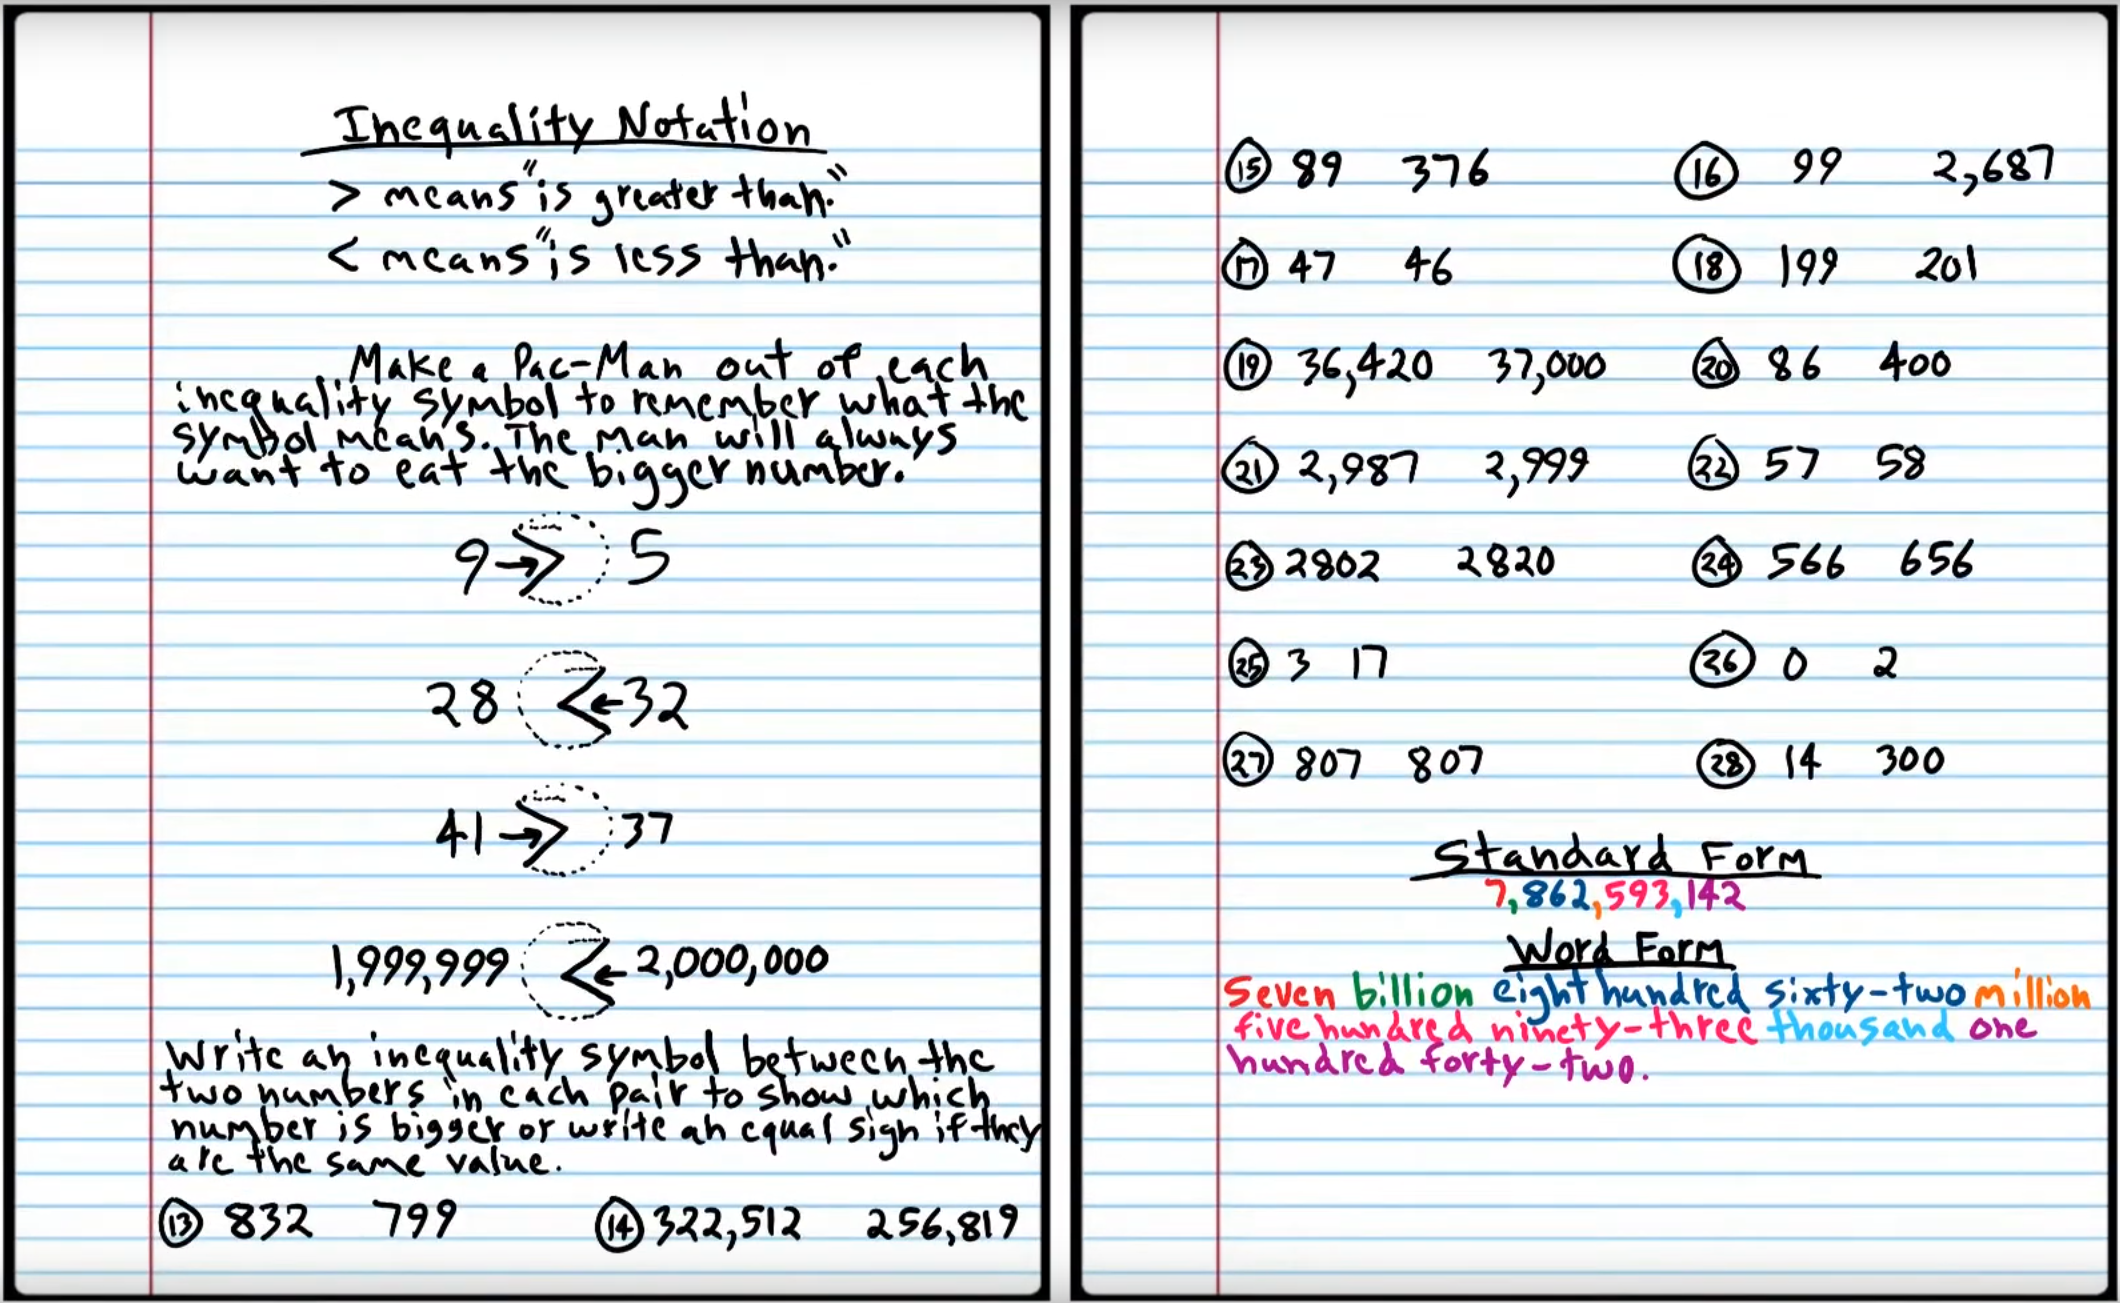 Inequality Notation
> means "is greater than."
< means "is less than."
Make a Pac-Man out of each
inequality symbol to remember what the
symbol means. The man will always
want to eat the bigger number.
9 → > 5
28 < ← 32
41 → > 37
1,999,999 < ← 2,000,000
Write an inequality symbol between the
two numbers in each pair to show which
number is bigger or write an equal sign if they
are the same value.
13 832 799 14 322,512 256,819
15 89 376 16 99 2,687
17 47 46 18 199 201
19 36,420 37,000 20 86 400
21 2,987 2,999 22 57 58
23 2802 2820 24 566 656
25 3 17 26 0 2
27 807 807 28 14 300
Standard Form
7,862,593,142
Word Form
Seven billion eight hundred sixty-two million
five hundred ninety-three thousand one
hundred forty-two.